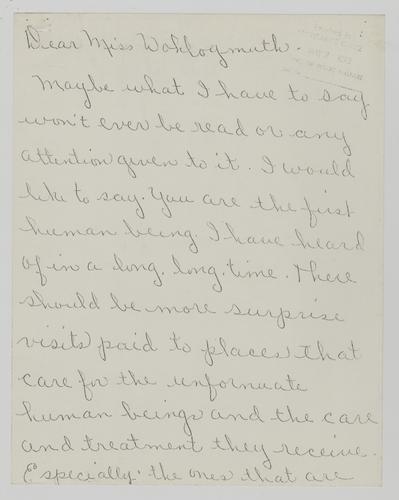 Dear Miss Wohlogmuth.
Maybe what I have to say
won't ever be read or any
attention given to it. I would
like to say. You are the first
human being I have heard
of in a long, long, time. There
should be more surprise
visits paid to places that
care for the unfornuate
human beings and the care
and treatment they receive.
Especially. the ones that are